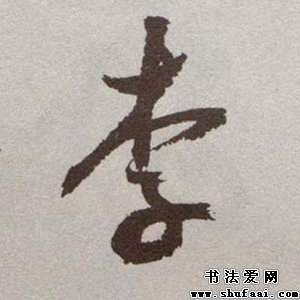 李
书法爱网
www.shufaai.com